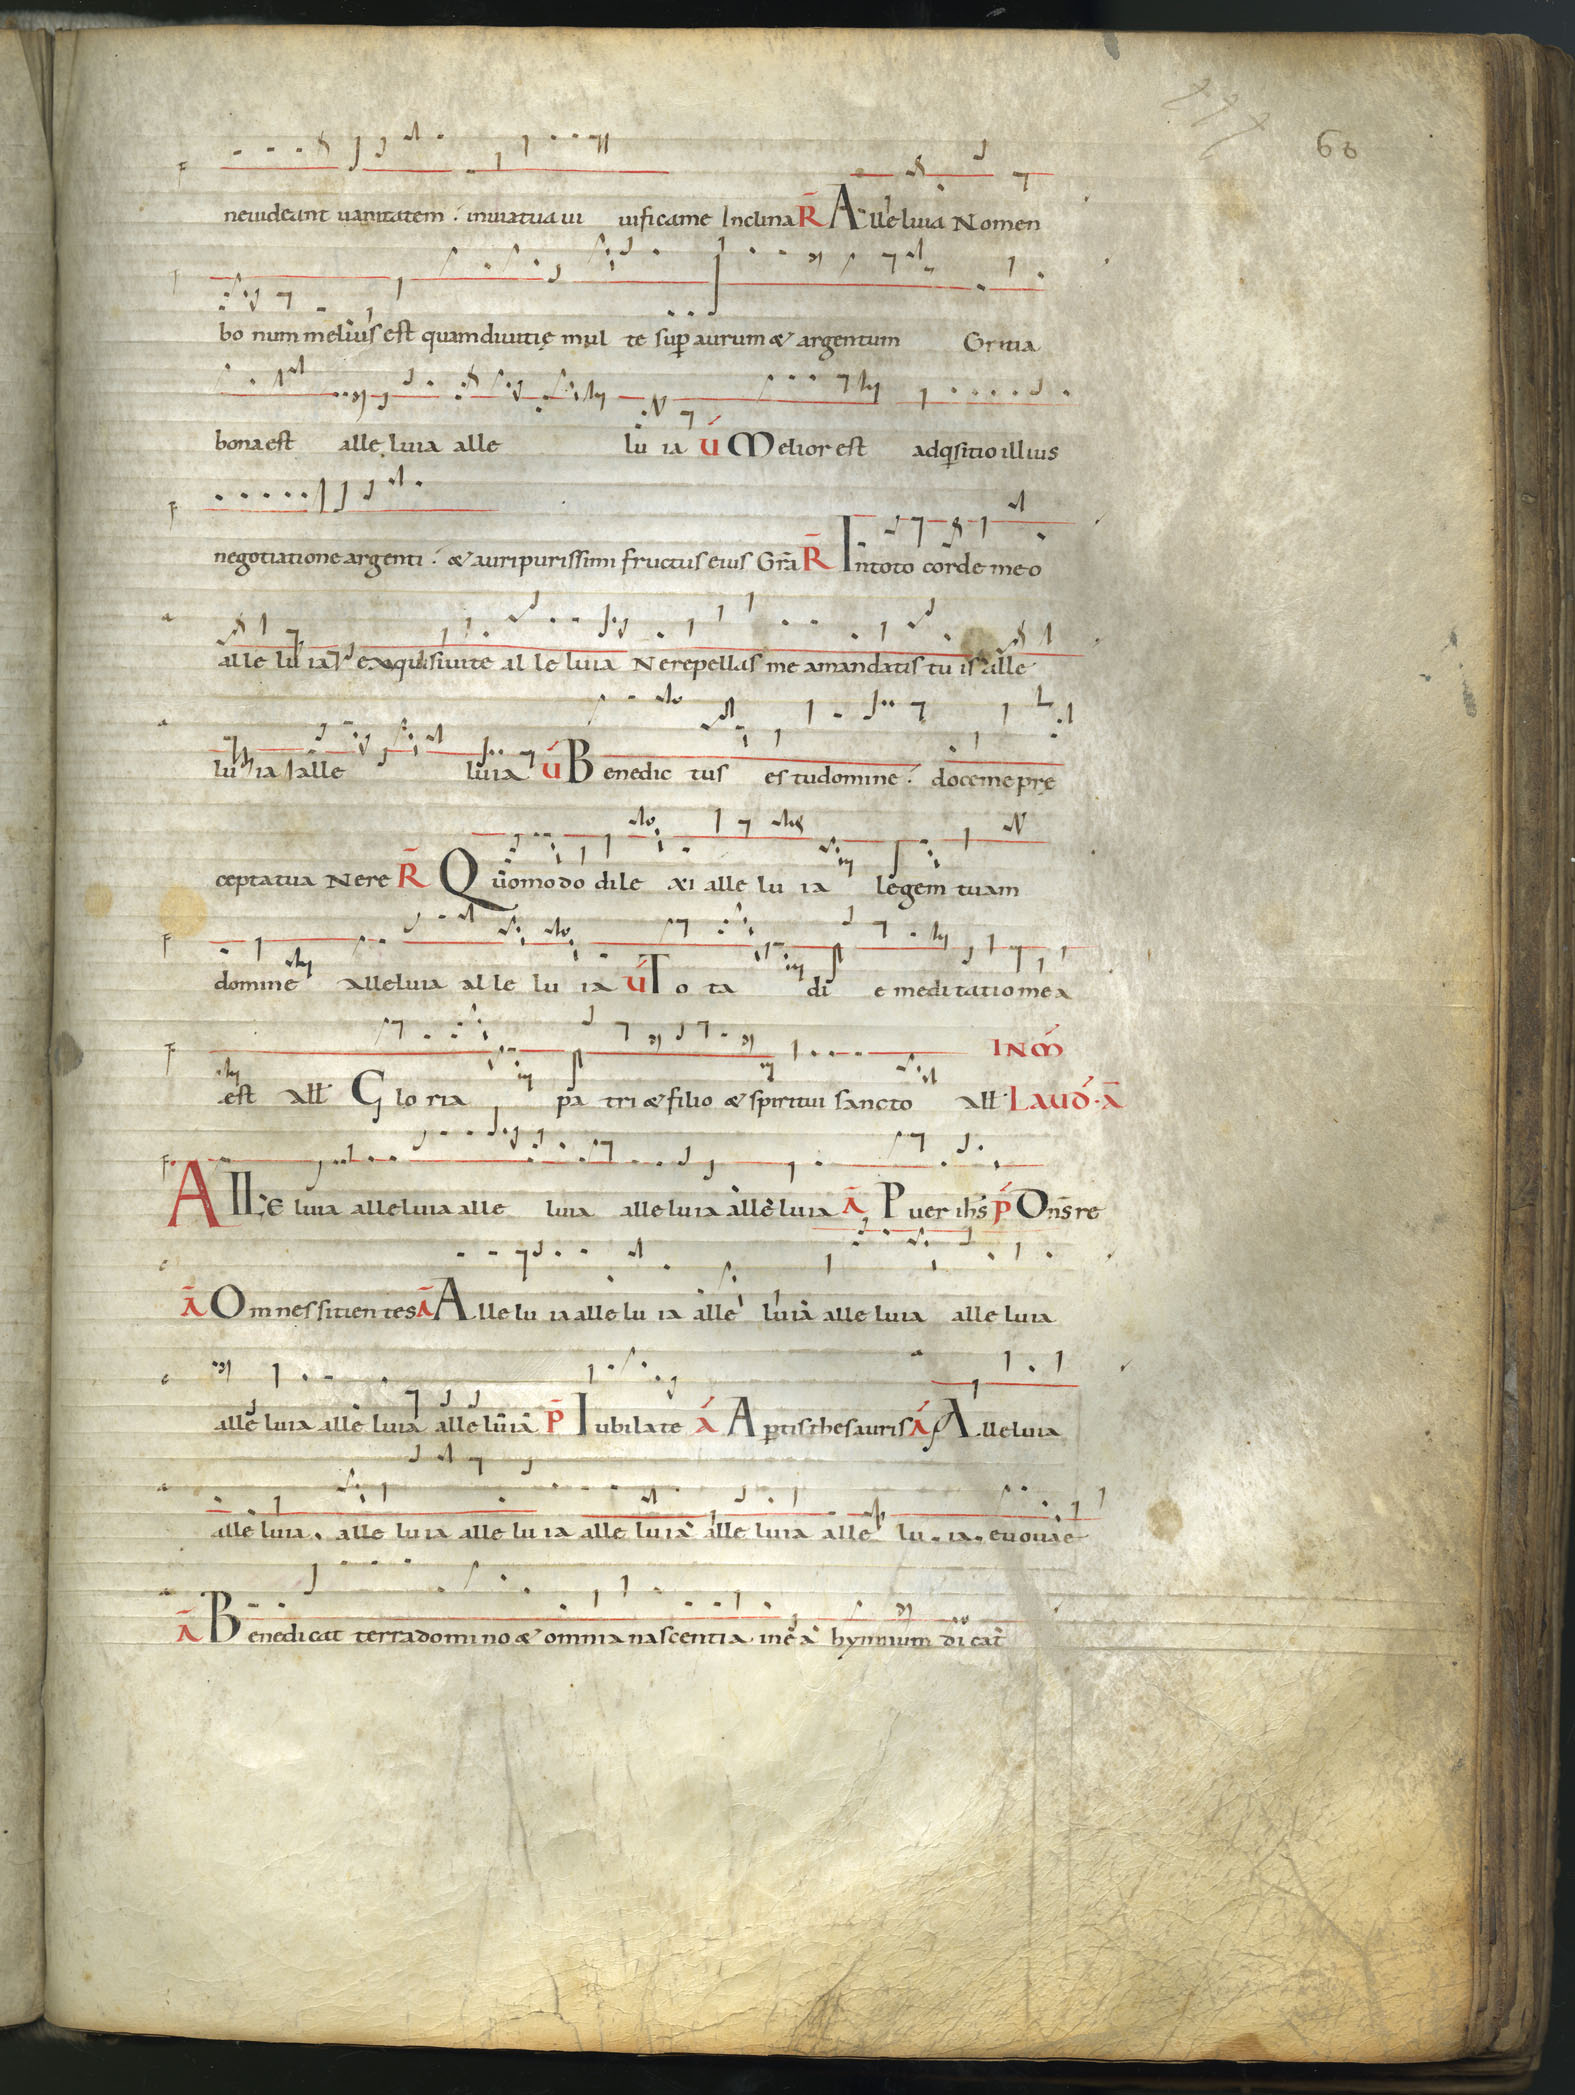 60
neuideant uanitatem . inuiatua ui uificame Inclina R Alleluia Nomen
bo num melius est quamdiuitię mul te sup aurum & argentum Gratia
bona est alle luia alle lu ia V Melior est adqsitio illius
negotiatione argenti . & auri purissimi fructus eius Gra R In toto corde meo
alle lu ia exquisiuite al le luia Ne repellas me amandatis tu is alle
lu ia alle luia V Benedic tus es tu domine . doce me prę
cepta tua Ne re R Quomodo dile xi alle lu ia legem tuam
domine alleluia al le lu ia V To ta di e meditatio mea
est all Glo ria pa tri & filio & spiritui sancto all IN M Laud. A
Alle luia alleluia alle luia alleluia alleluia A Puer ihs P Dns re
A Omnes sitientes A Alle lu ia alle lu ia alle luia alle luia alle luia
alle luia alle luia alle luia P Iubilate A Aptis thesauris A Alleluia
alle luia . alle luia alle lu ia alle luia alle luia alle lu . ia . euouae
A Benedicat terra domino & omnia nascentia in ea hymnum dicat